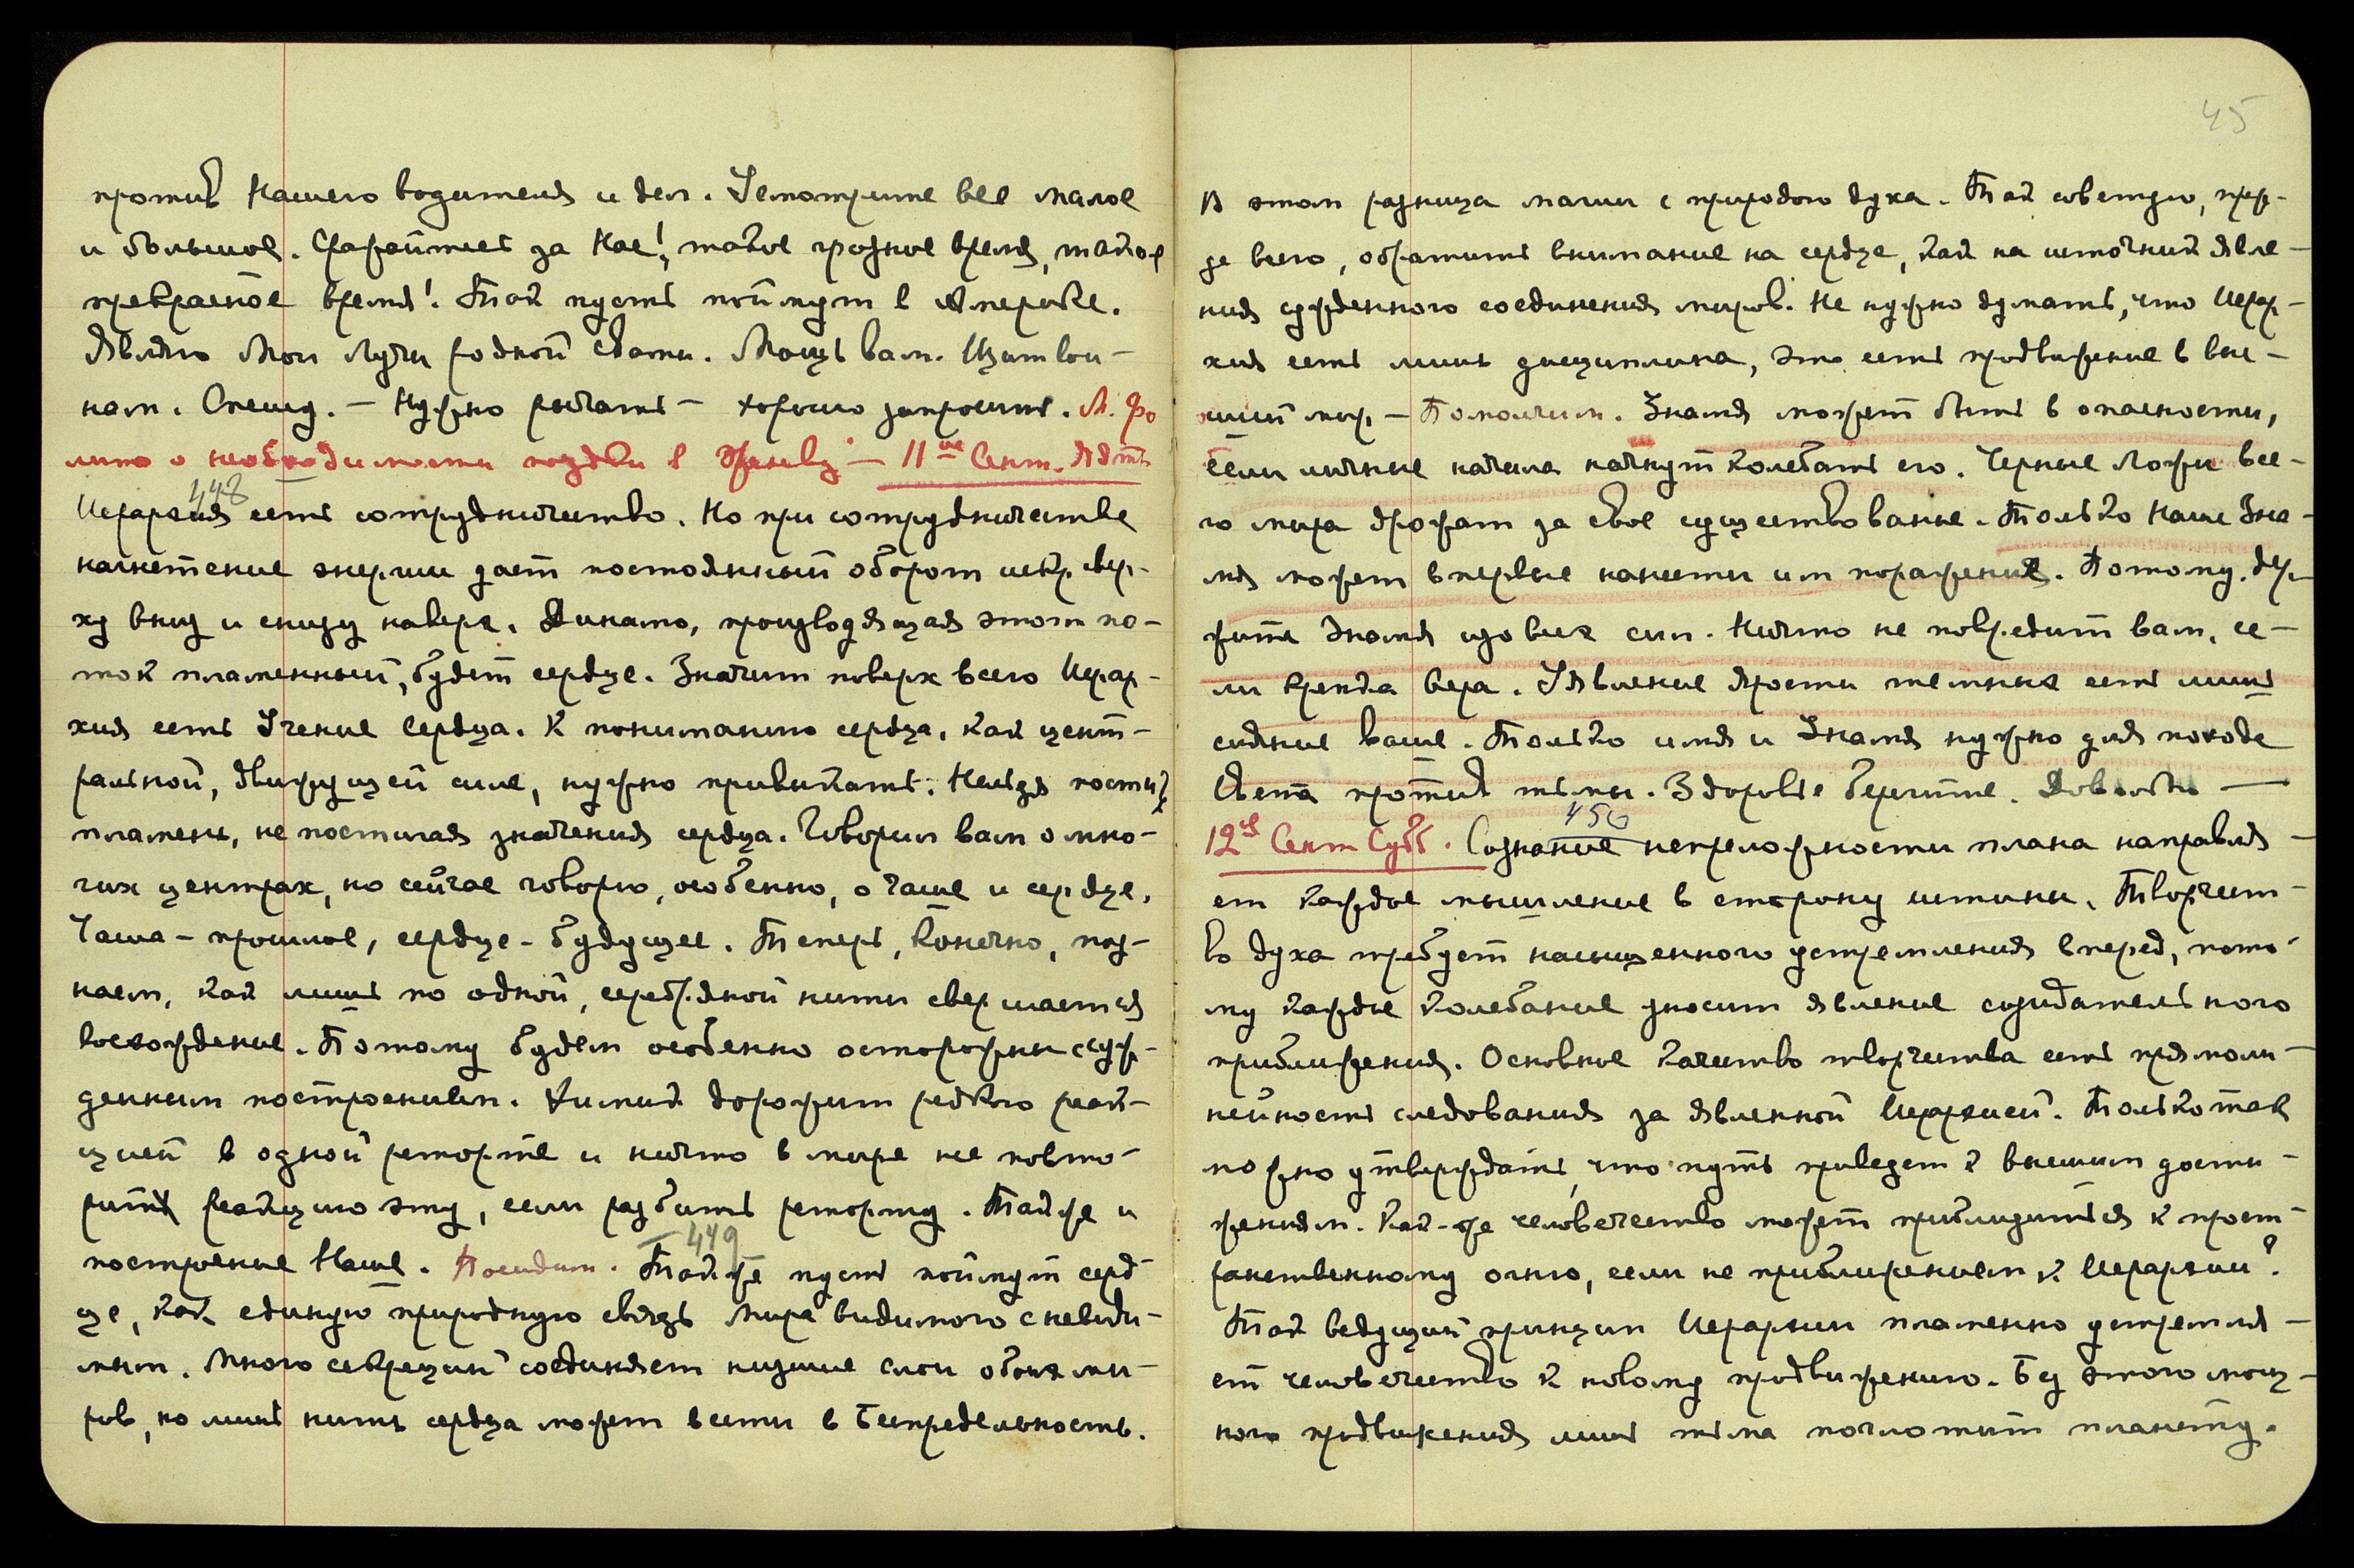 против Нашего водителя и дел. Усмотрите все малое
и большое. Сражайтесь за Нас!, такое грозное время, такое
прекрасное время! Так пусть поймут в Америке.
Являю Мои Лучи родной Свати. Мощь вам.
нам. Спешу. — Нужно рычать — хорошо запросить. М. Фо
лито о необходимости поездки в Женеву — 11ое Сент. Пят.
448
Иерархия есть сотрудничество. Но при сотрудничестве
нагнетение энергии дает постоянный оборот искр. свер-
ху вниз и снизу наверх. Динамо, производящая этот по-
ток пламенный, будет сердце. Значит поверх всего Иерар-
хия есть Учение Сердца. К пониманию сердца, как цент-
ральной, движущей силе, нужно привыкать. Нельзя пости
пламени, не постигая значения сердца. Говорил вам о мно-
гих центрах, но сейчас говорю, особенно, о чаше и сердце.
Чаша – прошлое, сердце – будущее. Теперь, конечно, поз-
наем, как лишь по одной, серебряной нити свершается
восхождение. Потому будем особенно осторожны с суж-
денным построением. Химик дорожит редкою реак-
цией в одной реторте и ничто в мире не повто-
рит реакцию эту, если разбить реторту. Также и
построение Наше. Посидим. Также пусть поймут серд-
449
це, как единую природную связь Мира видимого с невиди-
мым. Много секреций соединяет низшие слои обоих ми-
ров, но лишь нить сердца может вести в Беспредельность.
45
В этом разница магии с природою духа. Так советую, преж-
де всего, обратить внимание на сердце, как на источник явле-
ния сужденного соединения миров. Не нужно думать, что Иерар-
хия есть лишь дисциплина, это есть продвижение в выс-
ший мир — Помолчим. Знамя может быть в опасности,
если личные начала начнут колебать его. Черные Ложи все-
го мира дрожат за свое существование. Только Наше Зна-
мя может впервые нанести им поражение. Потому, дер-
жите Знамя изо всех сил. Ничто не повредит вам, ес-
ли крепка вера. Явление ярости темных есть лишь
сияние ваше. Только имя и Знамя нужно для похода
Света против тьмы. Здоровье берегите. Довольно —
450
12ое Сент Субб. Сознание непреложности плана направля-
ет каждое мышление в сторону истины. Творчест-
во духа требует насыщенного устремления вперед, пото-
му каждое колебание уносит явление созидательного
приближения. Основное качество творчества есть прямоли-
нейность следования за явленной Иерархией. Только так
можно утверждать, что путь приведет к высшим дости-
жениям. Как-же человечество может приблизиться к прост-
ранственному огню, если не приближением к Иерархии?
Так ведущий принцип Иерархии пламенно устремля-
ет человечество к новому продвижению. Без этого мощ-
ного продвижения лишь тьма поглотит планету.